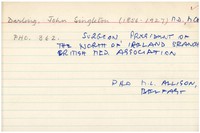 Darling, John Singleton (1856-1927) M.D., M.Ch.
PHO. 862. SURGEON, PRESIDENT OF
THE NORTH OF IRELAND BRANCH
BRITISH MED. ASSOCIATION
PRO M.L. ALLISON,
BELFAST